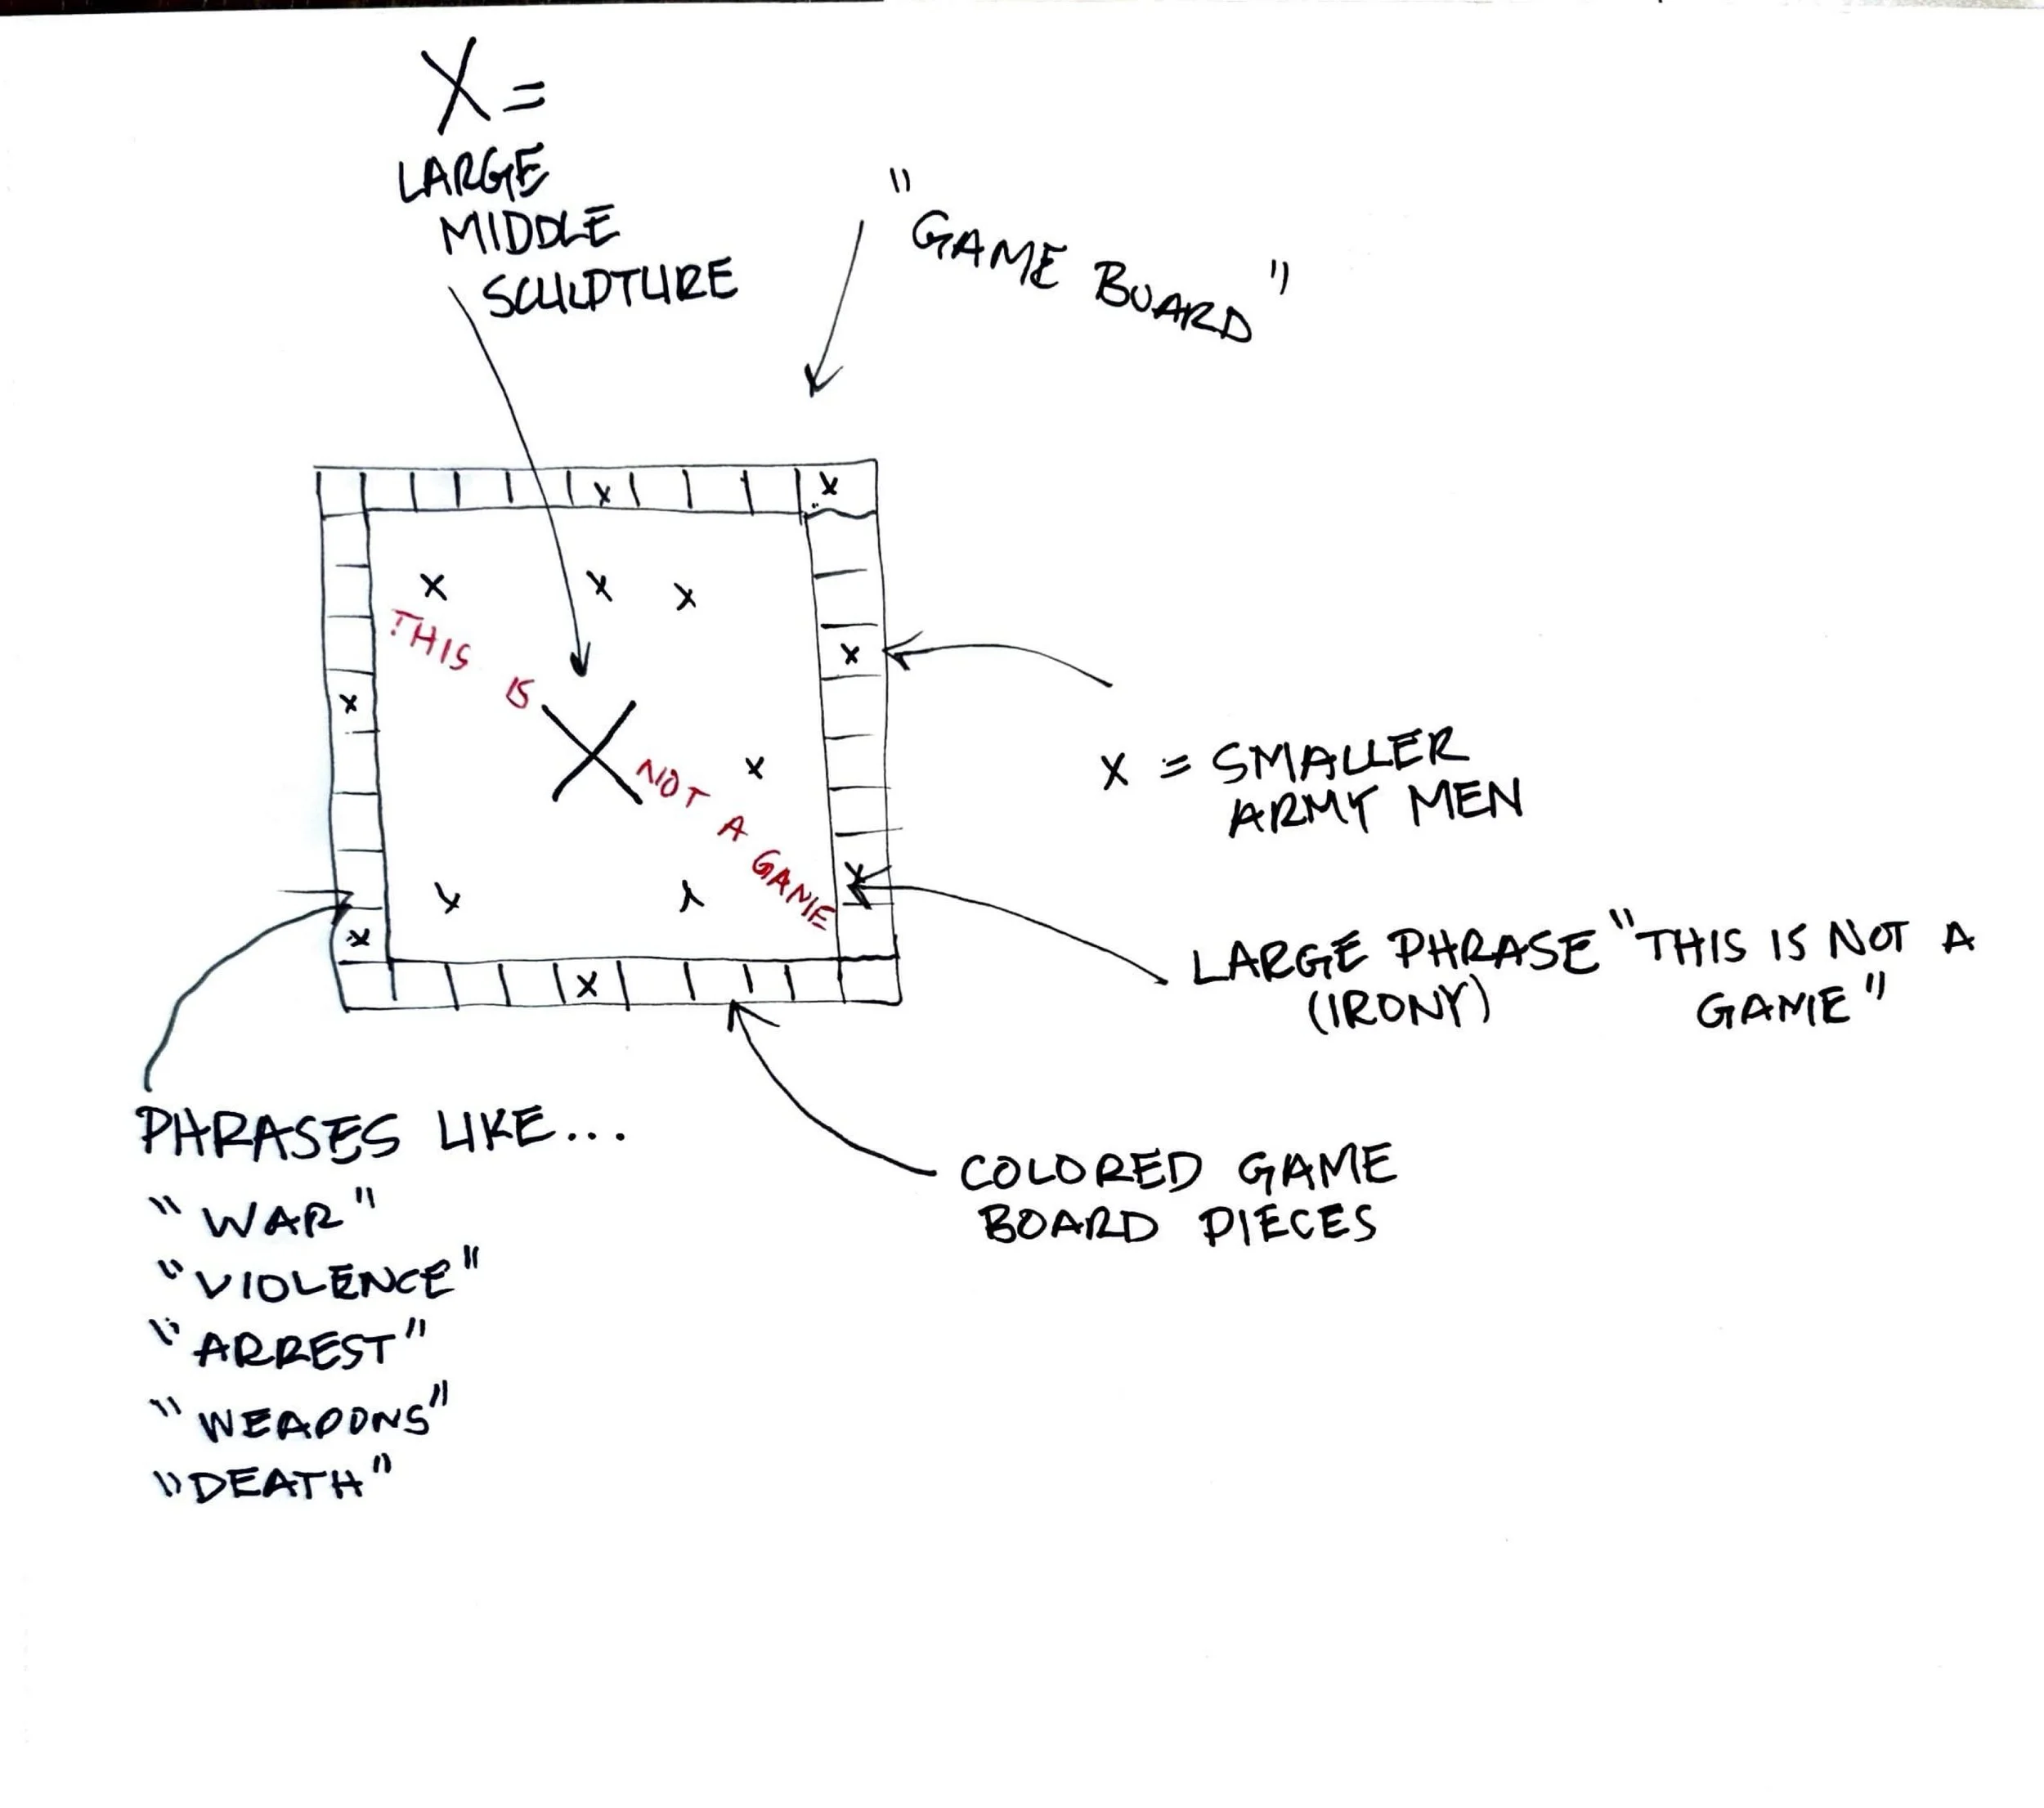 X =
LARGE
MIDDLE
SCULPTURE
"GAME BOARD"
x
x
x
x
x
THIS
IS
x
x
X
NOT A GAME
x
x = SMALLER
ARMY MEN
x
x
x
x
x
LARGE PHRASE "THIS IS NOT A
(IRONY) GAME"
PHRASES LIKE...
"WAR"
"VIOLENCE"
"ARREST"
"WEAPONS"
"DEATH"
COLORED GAME
BOARD PIECES